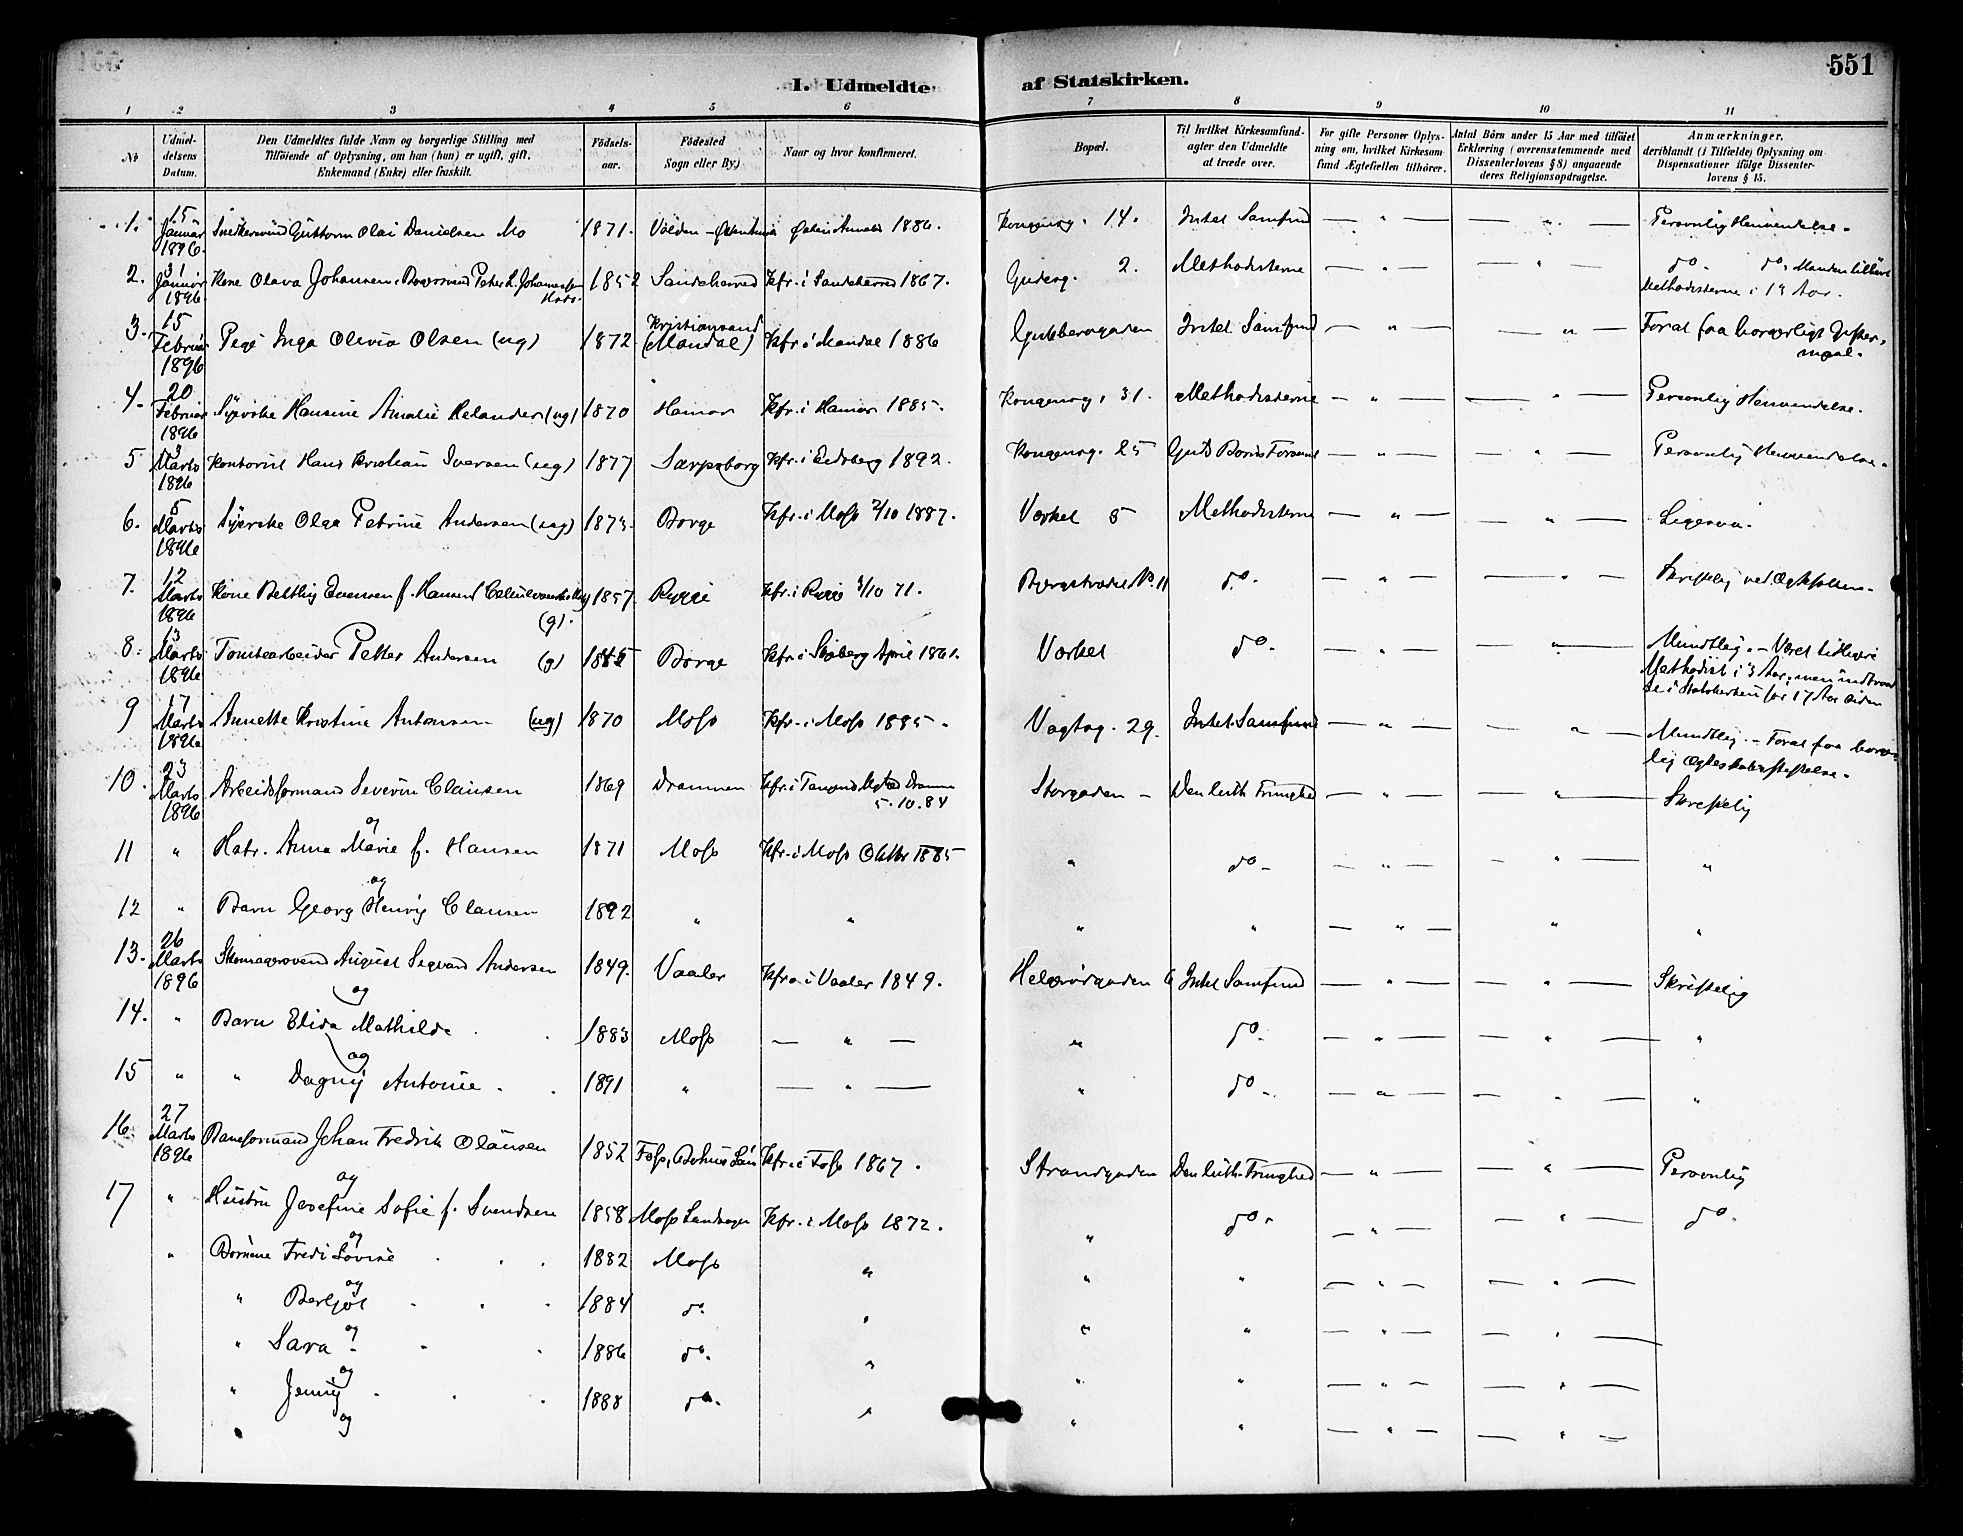 551
I. Udmeldte af Statskirken.
1 2 3 4 5 6 7 8 9 10 11
№
Udmel-
delsens
Datum.
Den Udmeldtes fulde Navn og borgerlige Stilling med
Tilføiende af Oplysning, om han (hun) er ugift, gift,
Enkemand (Enke) eller fraskilt.
Fødsels-
aar.
Fødested
Sogn eller By.)
Naar og hvor konfirmeret.
Bopæl.
Til hvilket Kirkesamfund-
agter den Udmeldte
at træde over.
For gifte Personer Oplys-
ning om, hvilket Kirkesam-
fund Ægtefællen tilhører.
Antal Børn under 15 Aar med tilføiet
Erklæring (overensstemmende med
Dissenterlovens § 8) angaaende
deres Religionsopdragelse.
Anmærkninger,
deriblandt (i Tilfælde) Oplysning om
Dispensationer ifølge Dissenter-
lovens § 15.
1. 15 Januar 1896. Guttorm Olai Danielsen Mo 1871. 1886. Kongensg. 14. Intet Samfund — " — — " — Personlig Henvendelse.
2. 31 Januar 1896 Kone Olava Johansen, 1852 Sandeherred Kfr. i Sandeherred 1867. Gudesg. 2. Methodisterne — " — — " — do. do. Manden tilhørt
Methodisterne i 13 Aar.
3. 15 Februar 1896 Pige Inga Olevia Olsen (ug) 1872 Kristiansand (Mandal) Kfr. i Mandal 1886 Intet Samfund — " — — " — Foral faa borgerligt Gifter-
maal.
4. 20 Februar 1896 Syerske Hansine Amalie Helander (ug) 1870 Hamar Kfr. i Hamar 1885. Kongensg. 31. Methodisterne — " — — " — Personlig Henvendelse.
5 3 Marts 1896 Kontorist Hans Kristian Iversen (ug) 1877 Sarpsborg Kfr. i Eidsberg 1892. Kongensg. 25 — " — — " — Personlig Henvendelse.
6. 5 Marts 1896 Syerske Olga Petrine Andersen (ug) 1873. Borge Kfr. i Moss 2/10 1887. Værket 5 Methodisterne — " — — " — Ligesaa.
7. 12 Marts 1896 Kone f. Hansen (g). 1857. Rygge Kfr. i Rygge /10 71. No. 11 do. — " — — " — Skriftlig
8. 13 Marts 1896 Tomtearbeider Petter Andersen (g) 1845 Borge Kfr. i April 1861. Værket do. — " — — " — Mundtlig. – Været tidligere
Methodist i 3 Aar, men indtraad
te i Statskirken for 17 Aar siden
9 17 Marts 1896 Annette Kristine Antonsen (ug) 1870 Moss Kfr. i Moss 1885. Vagtag. 29. Intet Samfund — " — — " — Mundtlig. – Foral faa borger
lig Ægteskabsstiftelse.
10. 23 Marts 1896 Arbeidsformand Severin Clausen 1869 Drammen Kfr. i Tangens
5.10.84 Storgaden – Den luth. Frimenighed — " — — " — Skriftelig
og
11 " Hstr. Anna Marie f. Hansen 1871 Moss Kfr. i Moss Oktbr 1885 " do. — " — — " — "
og
12 " Barn Georg Henrig Clausen 1892 " " " " — " — " "
13. 26 Marts 1896 Skomagersvend August Sigvard Andersen 1849. Vaaler Kfr. i Vaaler 1849. 6 Intet Samfund — " — — " — Skriftelig
og
14. " Barn Elida Mathilde 1883 Moss — " — " do. — " — — " — "
og
15 " " Dagny Antonie 1891 " — " — " do. — " — — " — "
16. 27 Marts 1896 Baneformand Johan Fredrik Olausen 1852 Foss, Bohus Län Kfr. i Foss 1867. Strandgaden Den luth. Frimenighed — " — — " — Personlig
og
17 " Hustru Josefine Sofie f. Svendsen 1858 Moss Landsogn Kfr. i Moss 1872. " do. — " — — " — do.
og
" Børnene Fredi Lovise 1882 Moss " " " — " — — " —
og
" Bergljot 1884 do. " " " — " — — " —
og
" Sara 1886 do. " " " — " — — " —
og
" Jenny 1888 do. " " " — " — — " —
og